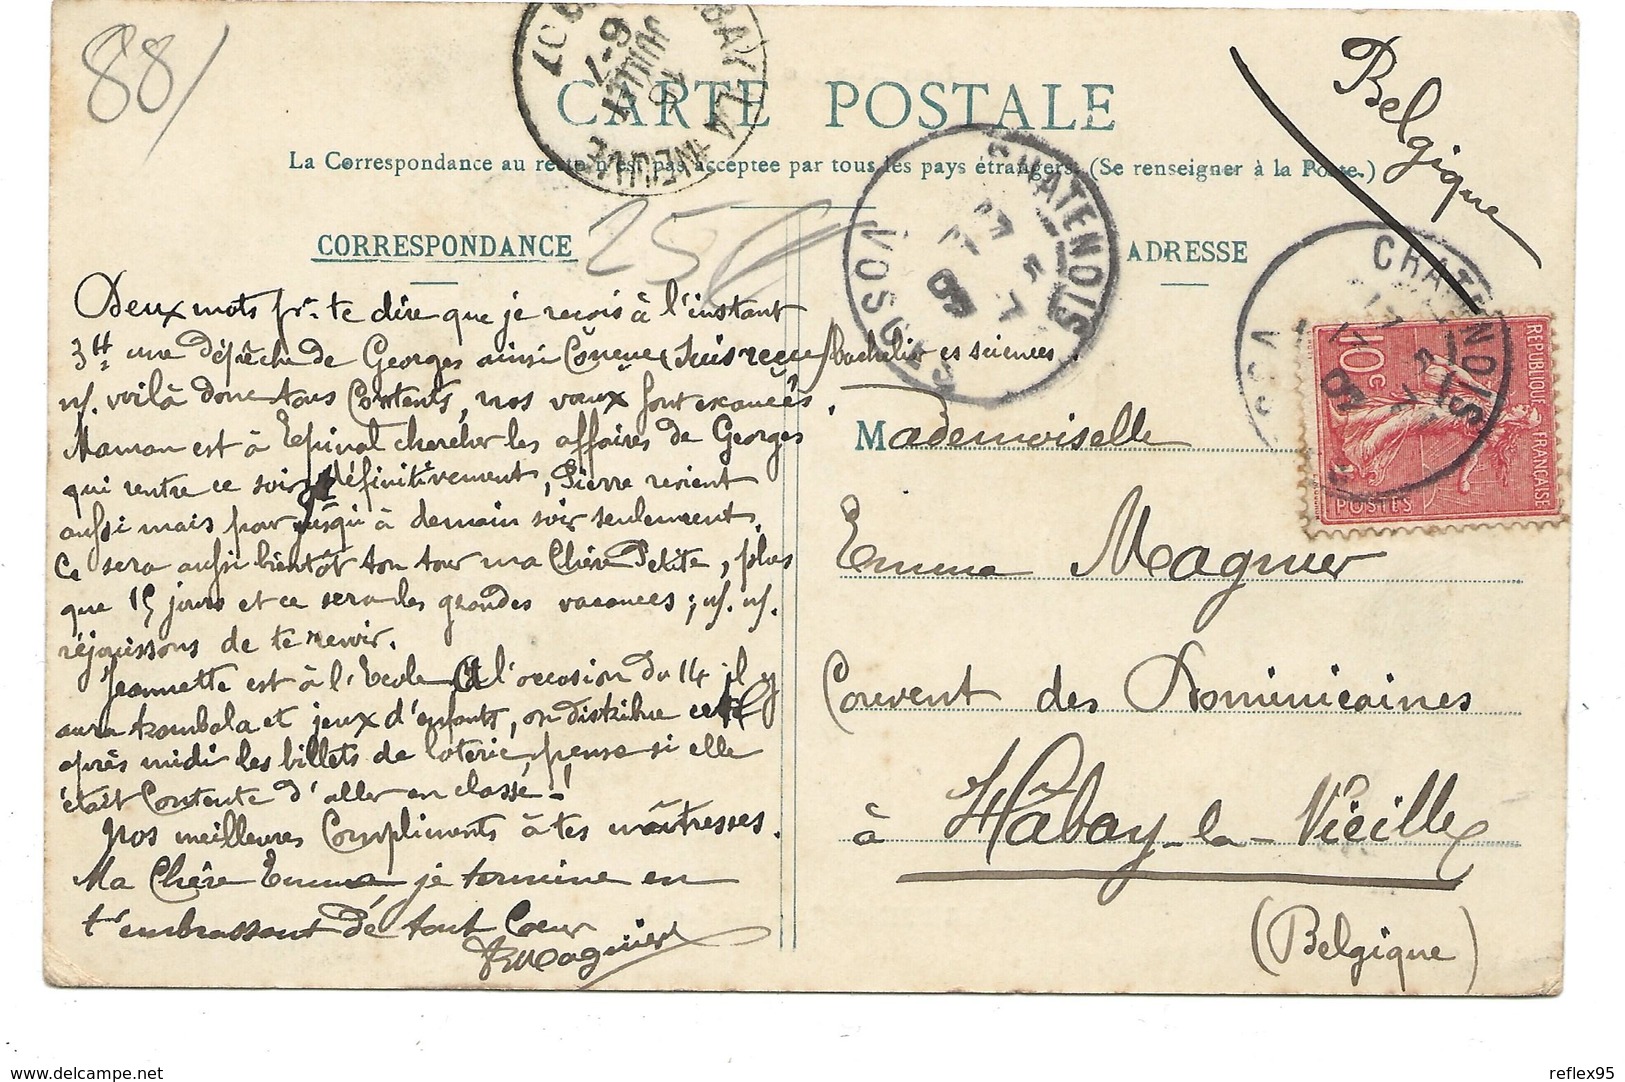 88/
CARTE POSTALE
La Correspondance au recto n'est pas acceptée par tous les pays étrangers. (Se renseigner à la Poste.)
Belgique
25
CHATENOIS
VOSGES
CHATENOIS
CORRESPONDANCE
ADRESSE
Deux mots pr. te dire que je reçois à l'instant
3H une dépêche de Georges ainsi conçue (suis reçu bachelier es sciences.
n/. voilà donc tous contents, nos vœux sont exaucés.
Maman est à Epinal chercher les affaires de Georges
qui rentre ce soir définitivement, Pierre revient
aussi mais pour jusqu'à demain soir seulement.
Ce sera aussi bientôt ton tour ma Chère Petite, plus
que 15 jours et ce sera les grandes vacances ; n/. n/.
réjouissons de te revoir.
Jeannette est à l'Ecole à l'occasion du 14 il y
aura tombola et jeux d'enfants, on distribue cet
après midi les billets de loterie, pense si elle
était contente d'aller en classe !
Nos meilleures Compliments à tes maîtresses.
Ma Chère Emma, je termine en
t'embrassant de tout Coeur
Magnier
Mademoiselle
Emma Magnier
Couvent des Dominicaines
à Hâbay-la-Vieille
(Belgique)
REPUBLIQUE FRANÇAISE
10c
POSTES
reflex95
delcampe.net